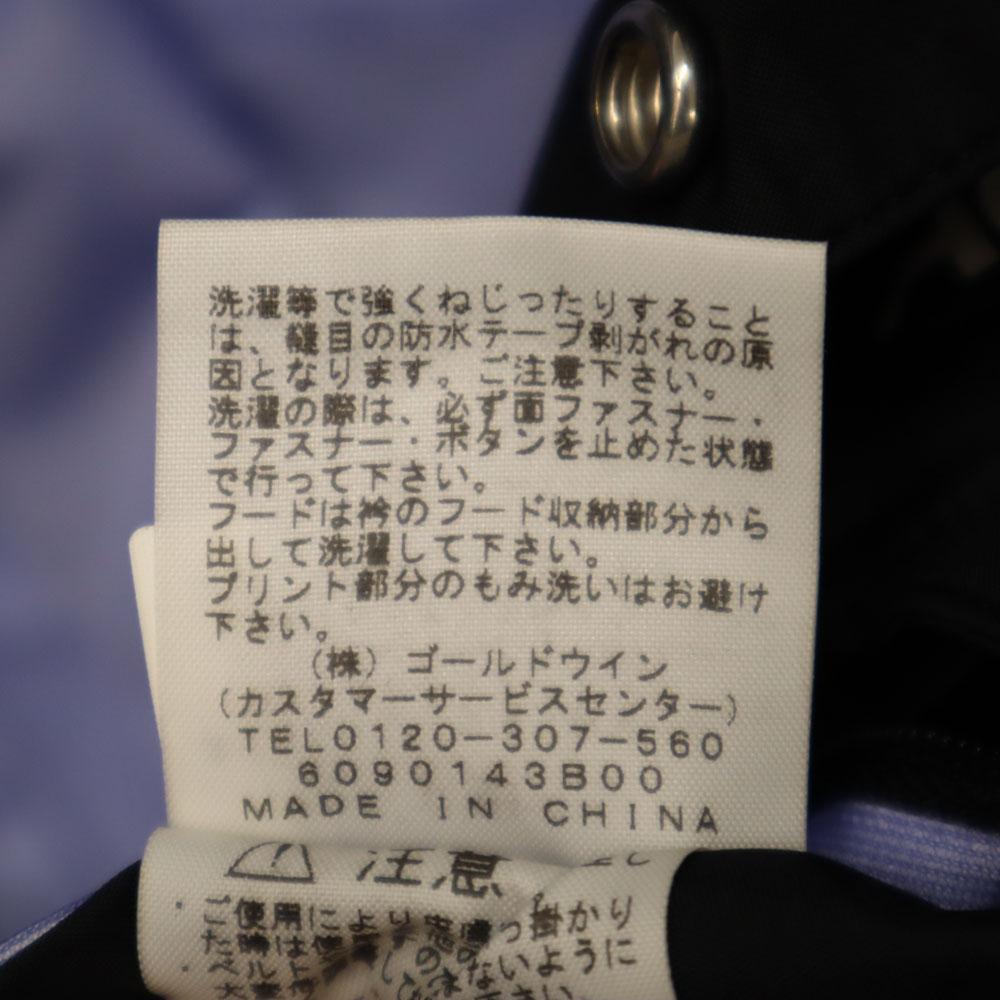 洗濯等で強くねじったりすること
は、縫目の防水テープ剥がれの原
因となります。ご注意下さい。
洗濯の際は、必ず面ファスナー・
ファスナー・ボタンを止めた状態
で行って下さい。
フードは衿のフード収納部分から
出して洗濯して下さい。
プリント部分のもみ洗いはお避け
下さい。
(株)ゴールドウイン
(カスタマーサービスセンター)
TEL0120-307-560
6090143B00
MADE IN CHINA
注意
・ご使用により 引っ掛かり
た時は使
ないように
さい。